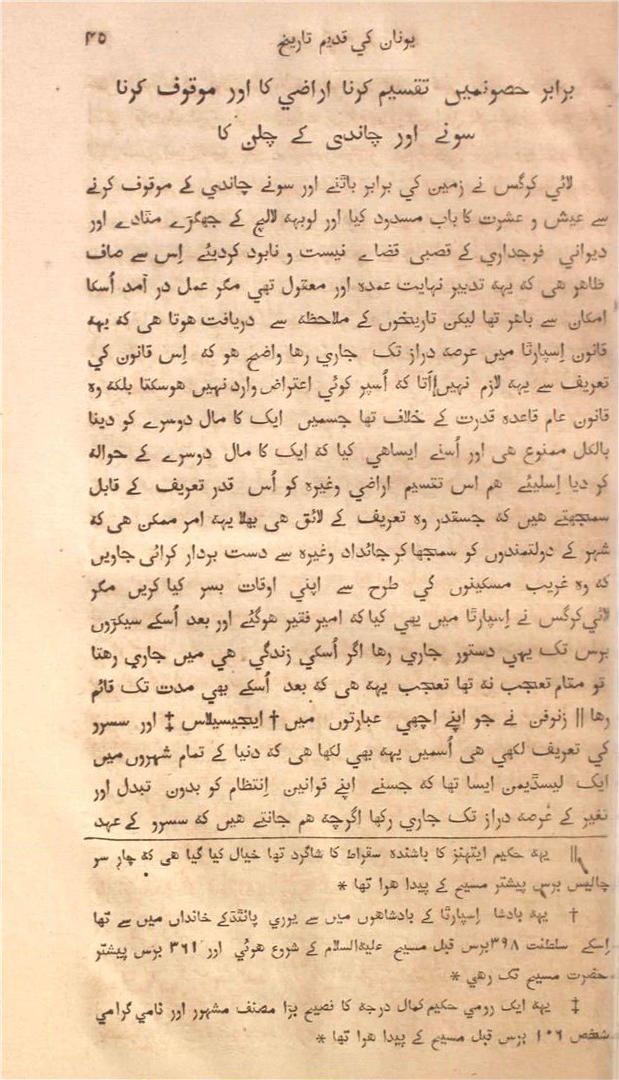 یونان کي قدیم تاریخ ۴۵
برابر حصونمیں تقسیم کرنا اراضي کا اور موقوف کرنا
سونے اور چاندي کے چلن کا
لائي کرگس نے زمین کي برابر بانٹنے اور سونے چاندي کے موقوف کرنے
سے عیش و عشرت کا باب مسدود کیا اور لوبهہ لالچ کے جهگڑے مٹادے اور
دیواني فوجداري کے قصبي قضاے نیست و نابود کردیئے اِس سے صاف
ظاهر هی که یهه تدبیر نہایت عمده اور معقول تهي مگر عمل در آمد اُسکا
امکان سے باهر تها لیکن تاریخوں کے ملاحظه سے دریافت هوتا هی که یهه
قانون اِسپارٹا میں عرصه دراز تک جاري رها واضح هو که اِس قانون کي
تعریف سے یهه لازم نہیں آتا که اُسپر کوئي اعتراض وارد نہیں هوسکتا بلکه وه
قانون عام قاعده قدرت کے خلاف تها جسمیں ایک کا مال دوسرے کو دینا
بالکل ممنوع هی اور اُسنے ایساهي کیا که ایک کا مال دوسرے کے حواله
کر دیا اِسلیئے هم اس تقسیم اراضي وغیره کو اُس قدر تعریف کے قابل
سمجهتے هیں که جسقدر وه تعریف کے لائق هی بهلا یهه امر ممکن هی که
شہر کے دولتمندوں کو سمجها کر جائداد وغیره سے دست بردار کرائی جاویں
که وه غریب مسکینوں کي طرح سے اپني اوقات بسر کیا کریں مگر
لائي کرگس نے اِسپارٹا میں یهي کیا که امیر فقیر هوگئے اور بعد اُسکے سیکڑوں
برس تک یهي دستور جاري رها اگر اُسکي زندگي هي میں جاري رهتا
تو مقام تعجب نه تها تعجب یهه هی که بعد اُسکے بهي مدت تک قائم
رها || زنوفن نے جو اپنے اچهي عبارتوں میں † ایجیسیلاس ‡ اور سسرو
کي تعریف لکهي هی اُسمیں یهه بهي لکها هی که دنیا کے تمام شہروں میں
ایک لیسڈیمن ایسا تها که جسنے اپنے قوانین اِنتظام کو بدون تبدل اور
تغیر کے عُرصه دراز تک جاري رکها اگرچه هم جانتے هیں که سسرو کے عهد
|| یهه حکیم ایتهنز کا باشنده سقراط کا شاگرد تها خیال کیا گیا هی که چار سر
چالیس برس پیشتر مسیح کے پیدا هوا تها *
† یهه بادشا اِسپارٹا کے بادشاهوں میں سے یوري پانٹڈکے خانداں میں سے تها
اِسکے سلطنت ۳۹۸ برس قبل مسیح علیه‌السلام کے شروع هوئي اور ۳۶۱ برس پیشتر
حضرت مسیح تک رهي *
‡ یهه ایک رومي حکیم کمال درجه کا فصیح بڑا مصنف مشہور اور نامي گرامي
شخص ۱۰۶ برس قبل مسیح کے پیدا هوا تها *